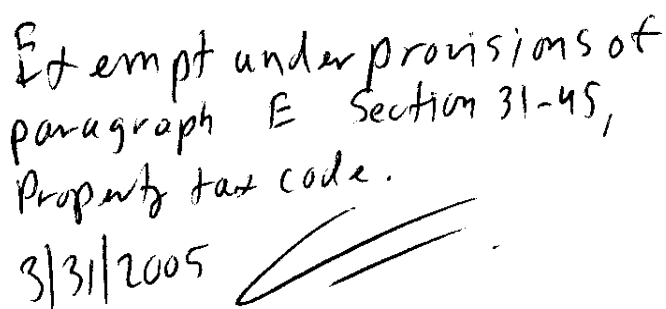 Exempt under provisions of
paragraph E Section 31-45,
Property tax code.
3/31/2005